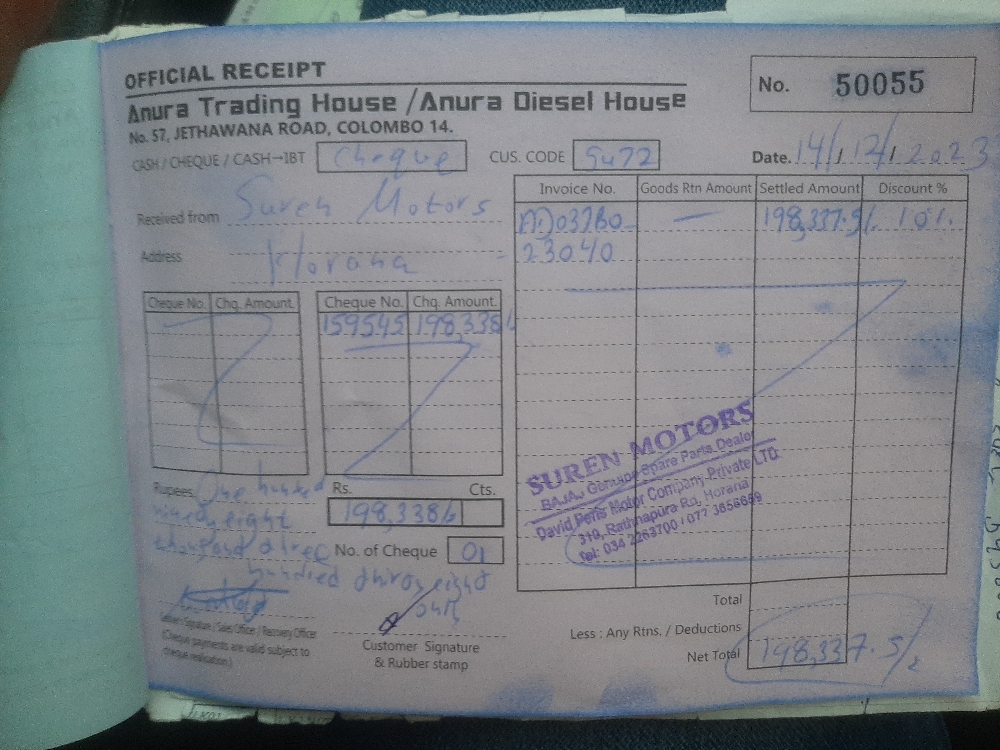 OFFICIAL RECEIPT
Anura Trading House / Anura Diesel House
No. 57, JETHAWANA ROAD, COLOMBO 14.
No. 50055
CASH / CHEQUE / CASH→IBT Cheque CUS. CODE Su72 Date. 14/12/2023
Received from Suren Motors
Address Horana
Invoice No. Goods Rtn Amount Settled Amount Discount %
— 198,337.5/. 10%
23040
Cheque No. Chq. Amount. Cheque No. Chq. Amount.
159545 198,338/
SUREN MOTORS
BAJAJ Genuine Spare Parts Dealer
David Peris Motor Company Private LTD.
310, Rathnapura Rd, Horana
Tel: 034 2263700 / 077 3656659
Rupees. One hundred Rs. Cts.
ninety eight 198,338/-
thousand three No. of Cheque 01
hundred thirty eight
only
Customer Signature
& Rubber stamp
(Cheque payments are valid subject to
cheque realisation.)
Total
Less : Any Rtns. / Deductions
Net Total 198,337.5/